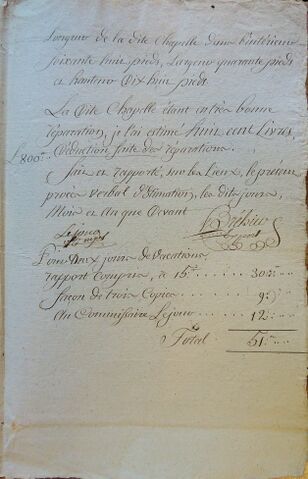 Longeur de la dite Chapelle dans l'intérieur
soixante huit pieds, Largeur quarante pieds
et hauteur dix huit pieds
La dite Chapelle étant en très bonne
réparation, je l'ai estimé huit cent Livres
£800:
déduction faite des réparations.
Fait et rapporté, sur les Lieux, le présent
procès verbal d'Estimation, les dits jours,
Mois et An que devant
Lejeune
Pour deux jours de vacations,
rapport Compris, à 15.# . . . . 30:#
façon de trois Copies . . . . . 9:
au Commissaire Lejeune . . . . 12:#
Total . . . . 51:#